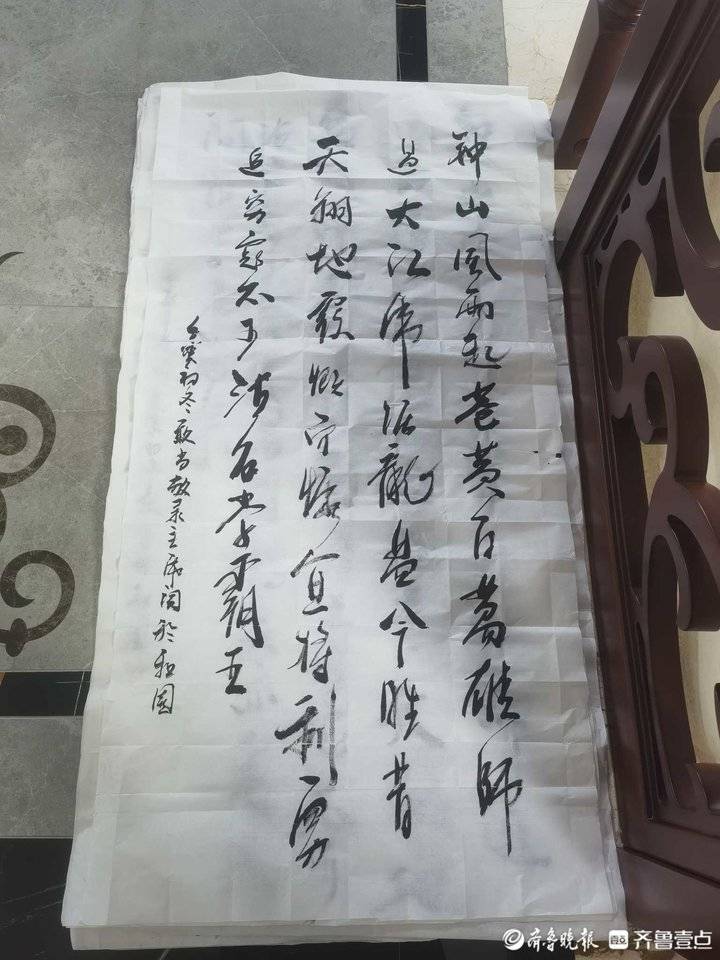 鍾山風雨起苍黄百萬雄師
过大江虎踞龍盘今胜昔
天翻地覆慨而慷宜将剩勇
追穷寇不可沽名学霸王
初冬敬录主席词於和園
齐鲁晚报 齐鲁壹点